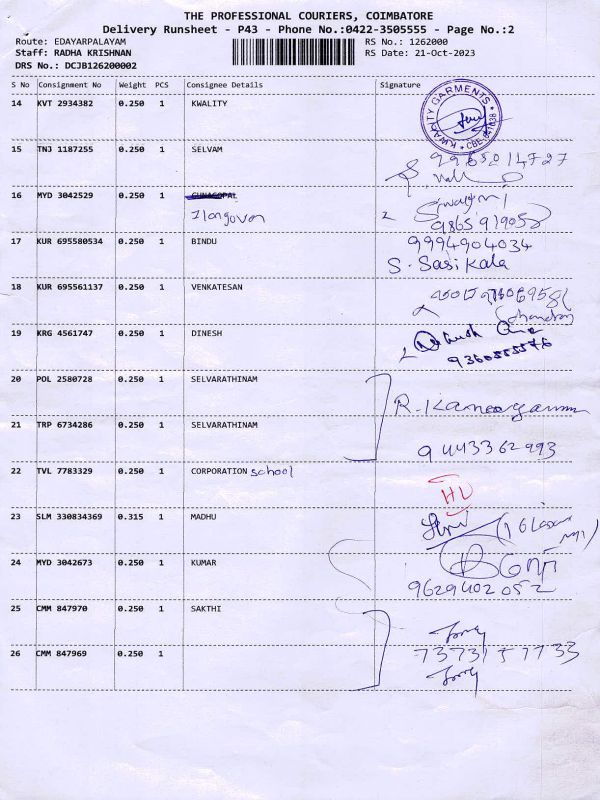 THE PROFESSIONAL COURIERS, COIMBATORE
Delivery Runsheet - P43 - Phone No.:0422-3505555 - Page No.:2
Route: EDAYARPALAYAM
RS No.: 1262000
Staff: RADHA KRISHNAN
RS Date: 21-Oct-2023
DRS No.: DCJB126200002
S No Consignment No Weight PCS Consignee Details Signature
14 KVT 2934382 0.250 1 KWALITY
KWALITY GARMENTS
15 TNJ 1187255 0.250 1 SELVAM
16 MYD 3042529 0.250 1 GUNAGOPAL
Ilangovan
9865919058
17 KUR 695580534 0.250 1 BINDU 9994904034
S. Sasi Kala
18 KUR 695561137 0.250 1 VENKATESAN
19 KRG 4561747 0.250 1 DINESH
9360555576
20 POL 2580728 0.250 1 SELVARATHINAM
21 TRP 6734286 0.250 1 SELVARATHINAM
9443362993
22 TVL 7783329 0.250 1 CORPORATION school
23 SLM 330834369 0.315 1 MADHU
24 MYD 3042673 0.250 1 KUMAR
9629402052
25 CMM 847970 0.250 1 SAKTHI
26 CMM 847969 0.250 1